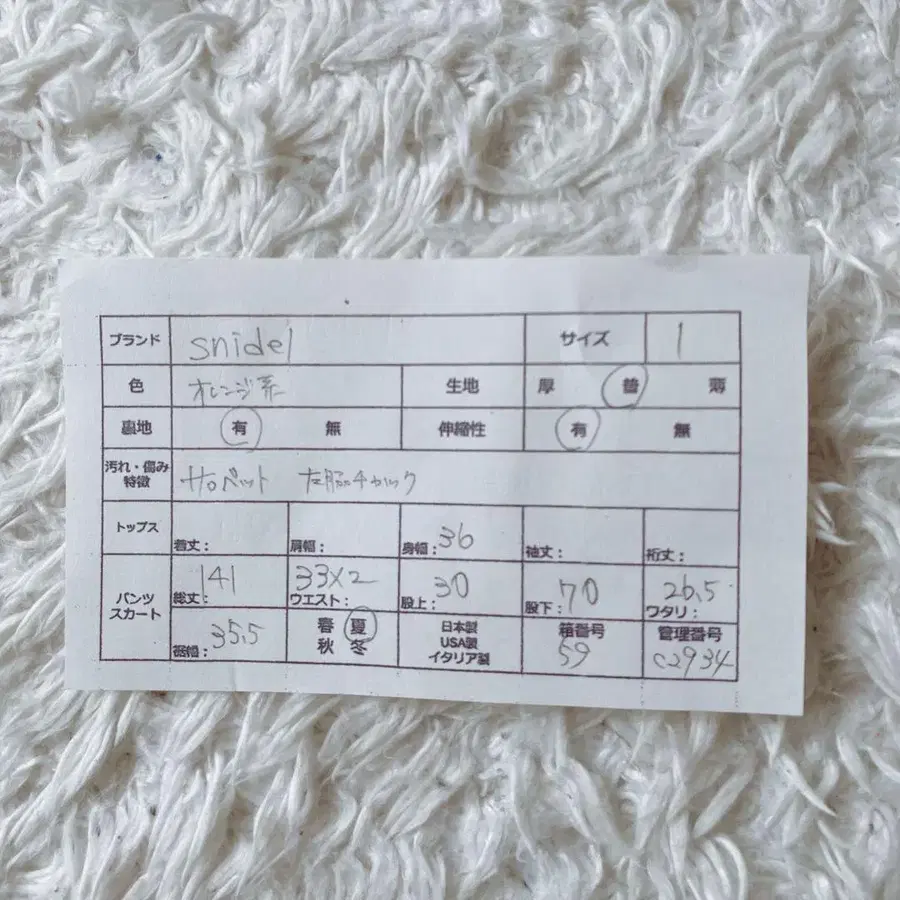 ブランド snidel サイズ 1
色 オレンジ系 生地 厚 普 薄
裏地 有 無 伸縮性 有 無
汚れ・傷み
特徴 サロペット 左脇チャック
トップス 着丈： 肩幅： 身幅：36 袖丈： 裄丈：
パンツ
スカート
総丈：141 ウエスト：33×2 股上：30 股下：70 ワタリ：26.5
裾幅：35.5
春 夏
秋 冬
日本製
USA製
イタリア製
箱番号
59
管理番号
C2934